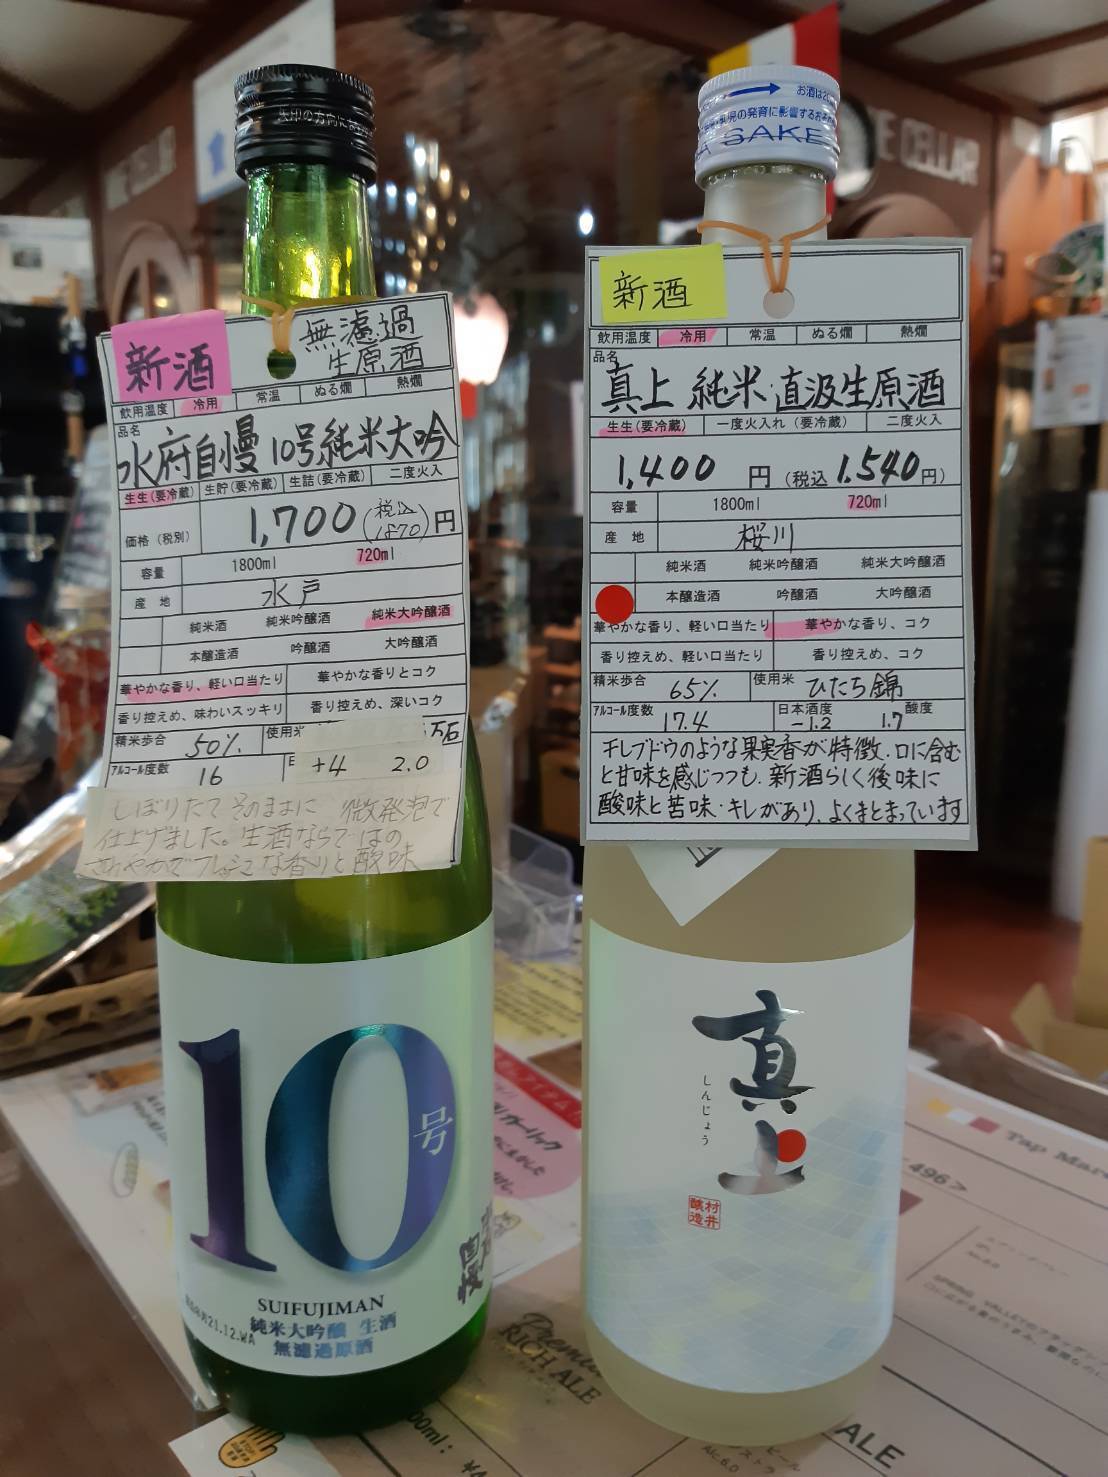 矢印の方向に
新酒
無濾過
生原酒
飲用温度 冷用 常温 ぬる燗 熱燗
品名
水府自慢 10号純米大吟
生生(要冷蔵) 生貯(要冷蔵) 生詰(要冷蔵) 二度火入
価格(税別) 1,700 (税込 1870) 円
容量 1800ml 720ml
産地 水戸
純米酒 純米吟醸酒 純米大吟醸酒
本醸造酒 吟醸酒 大吟醸酒
華やかな香り、軽い口当たり 華やかな香りとコク
香り控えめ、味わいスッキリ 香り控えめ、深いコク
精米歩合 50% 使用米 万石
アルコール度数 16 +4 2.0
しぼりたてそのままに 微発泡で
仕上げました。生酒ならではの
さわやかでフレッシュな香りと酸味
10号
SUIFUJIMAN
純米大吟醸 生酒
無濾過原酒
21.12.WA
お酒は20
児の発育に影響する
SAKE
新酒
飲用温度 冷用 常温 ぬる燗 熱燗
品名
真上 純米・直汲生原酒
生生(要冷蔵) 一度火入れ(要冷蔵) 二度火入
1,400 円 (税込 1.540円)
容量 1800ml 720ml
産地 桜川
純米酒 純米吟醸酒 純米大吟醸酒
本醸造酒 吟醸酒 大吟醸酒
華やかな香り、軽い口当たり 華やかな香り、コク
香り控えめ、軽い口当たり 香り控えめ、コク
精米歩合 65% 使用米 ひたち錦
アルコール度数 17.4 日本酒度 -1.2 1.7 酸度
干しブドウのような果実香が特徴.口に含む
と甘味を感じつつも.新酒らしく後味に
酸味と苦味・キレがあり、よくまとまっています
真上
しんじょう
村井
醸造
CELLAR
Tap Mar
496>
Premium
RICH ALE
ALE
SPRING VALLEY
ガーリック